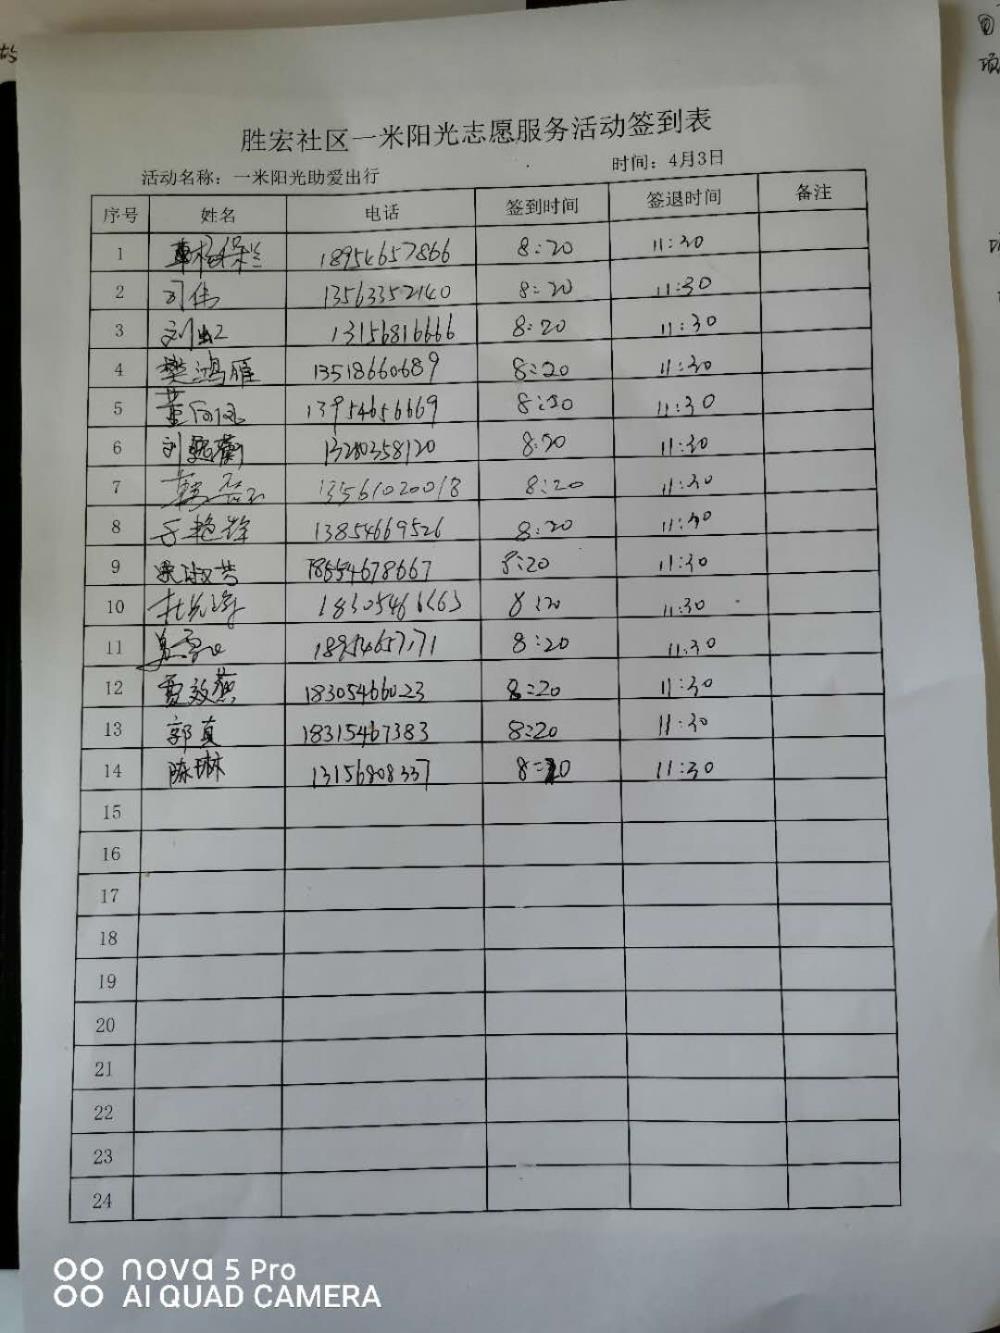 胜宏社区一米阳光志愿服务活动签到表
活动名称：一米阳光助爱出行 时间：4月3日
序号 姓名 电话 签到时间 签退时间 备注
1 18954657866 8:20 11:30
2 13563352140 8:20 11:30
3 13156816666 8:20 11:30
4 樊鸿雁 13518660689 8:20 11:30
5 13954656669 8:20 11:30
6 13280358120 8:20 11:30
7 13561020018 8:20 11:30
8 于艳 13854669526 8:20 11:30
9 18554678667 8:20 11:30
10 8:20 11:30
11 8:20 11:30
12 贾效燕 18305466023 8:20 11:30
13 郭真 18315467383 8:20 11:30
14 陈琳 13156808337 8:20 11:30
15
16
17
18
19
20
21
22
23
24
nova 5 Pro
AI QUAD CAMERA